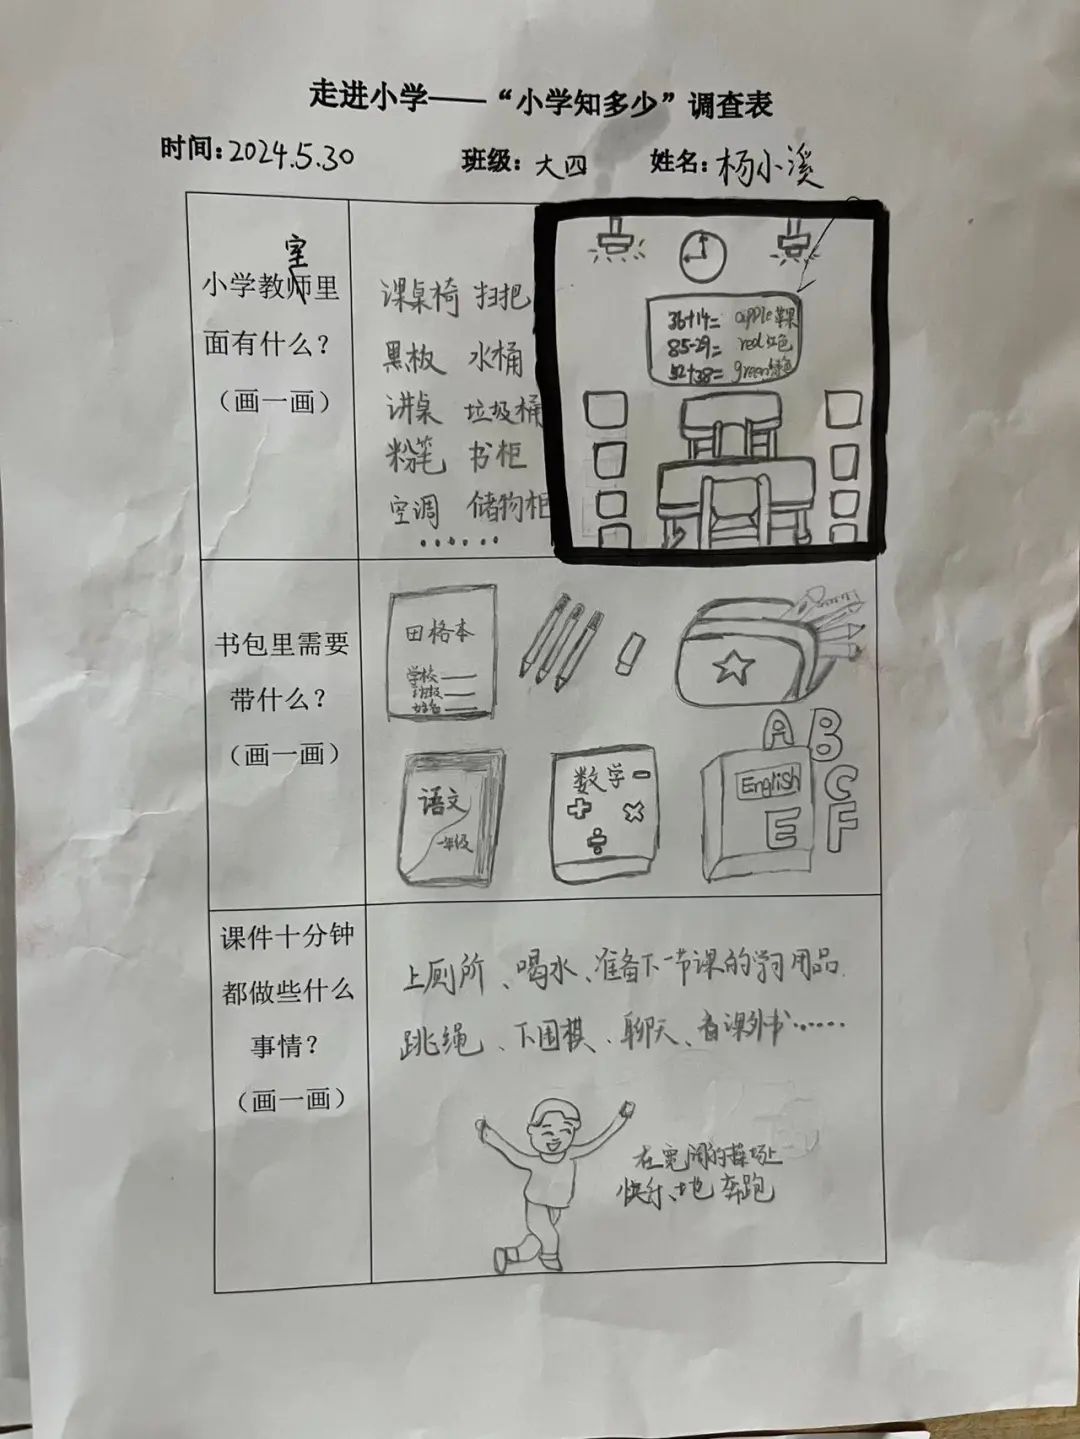 走进小学——“小学知多少”调查表
时间：2024.5.30 班级：大四 姓名：杨小溪
室
小学教师里
面有什么？
（画一画）
课桌椅 扫把
黑板 水桶
讲桌 垃圾桶
粉笔 书柜
空调 储物柜
......
36+14= apple 苹果
85-29= red 红色
52+38= green 绿色
书包里需要
带什么？
（画一画）
田格本
学校
班级
姓名
语文
一年级
数学
- + × ÷
English
A B C
E F
课件十分钟
都做些什么
事情？
（画一画）
上厕所、喝水、准备下一节课的学习用品
跳绳、下围棋、聊天、看课外书......
在宽阔的操场上
快乐地奔跑